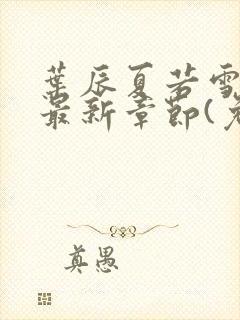 葉辰夏若雪
最新章節(
真愚